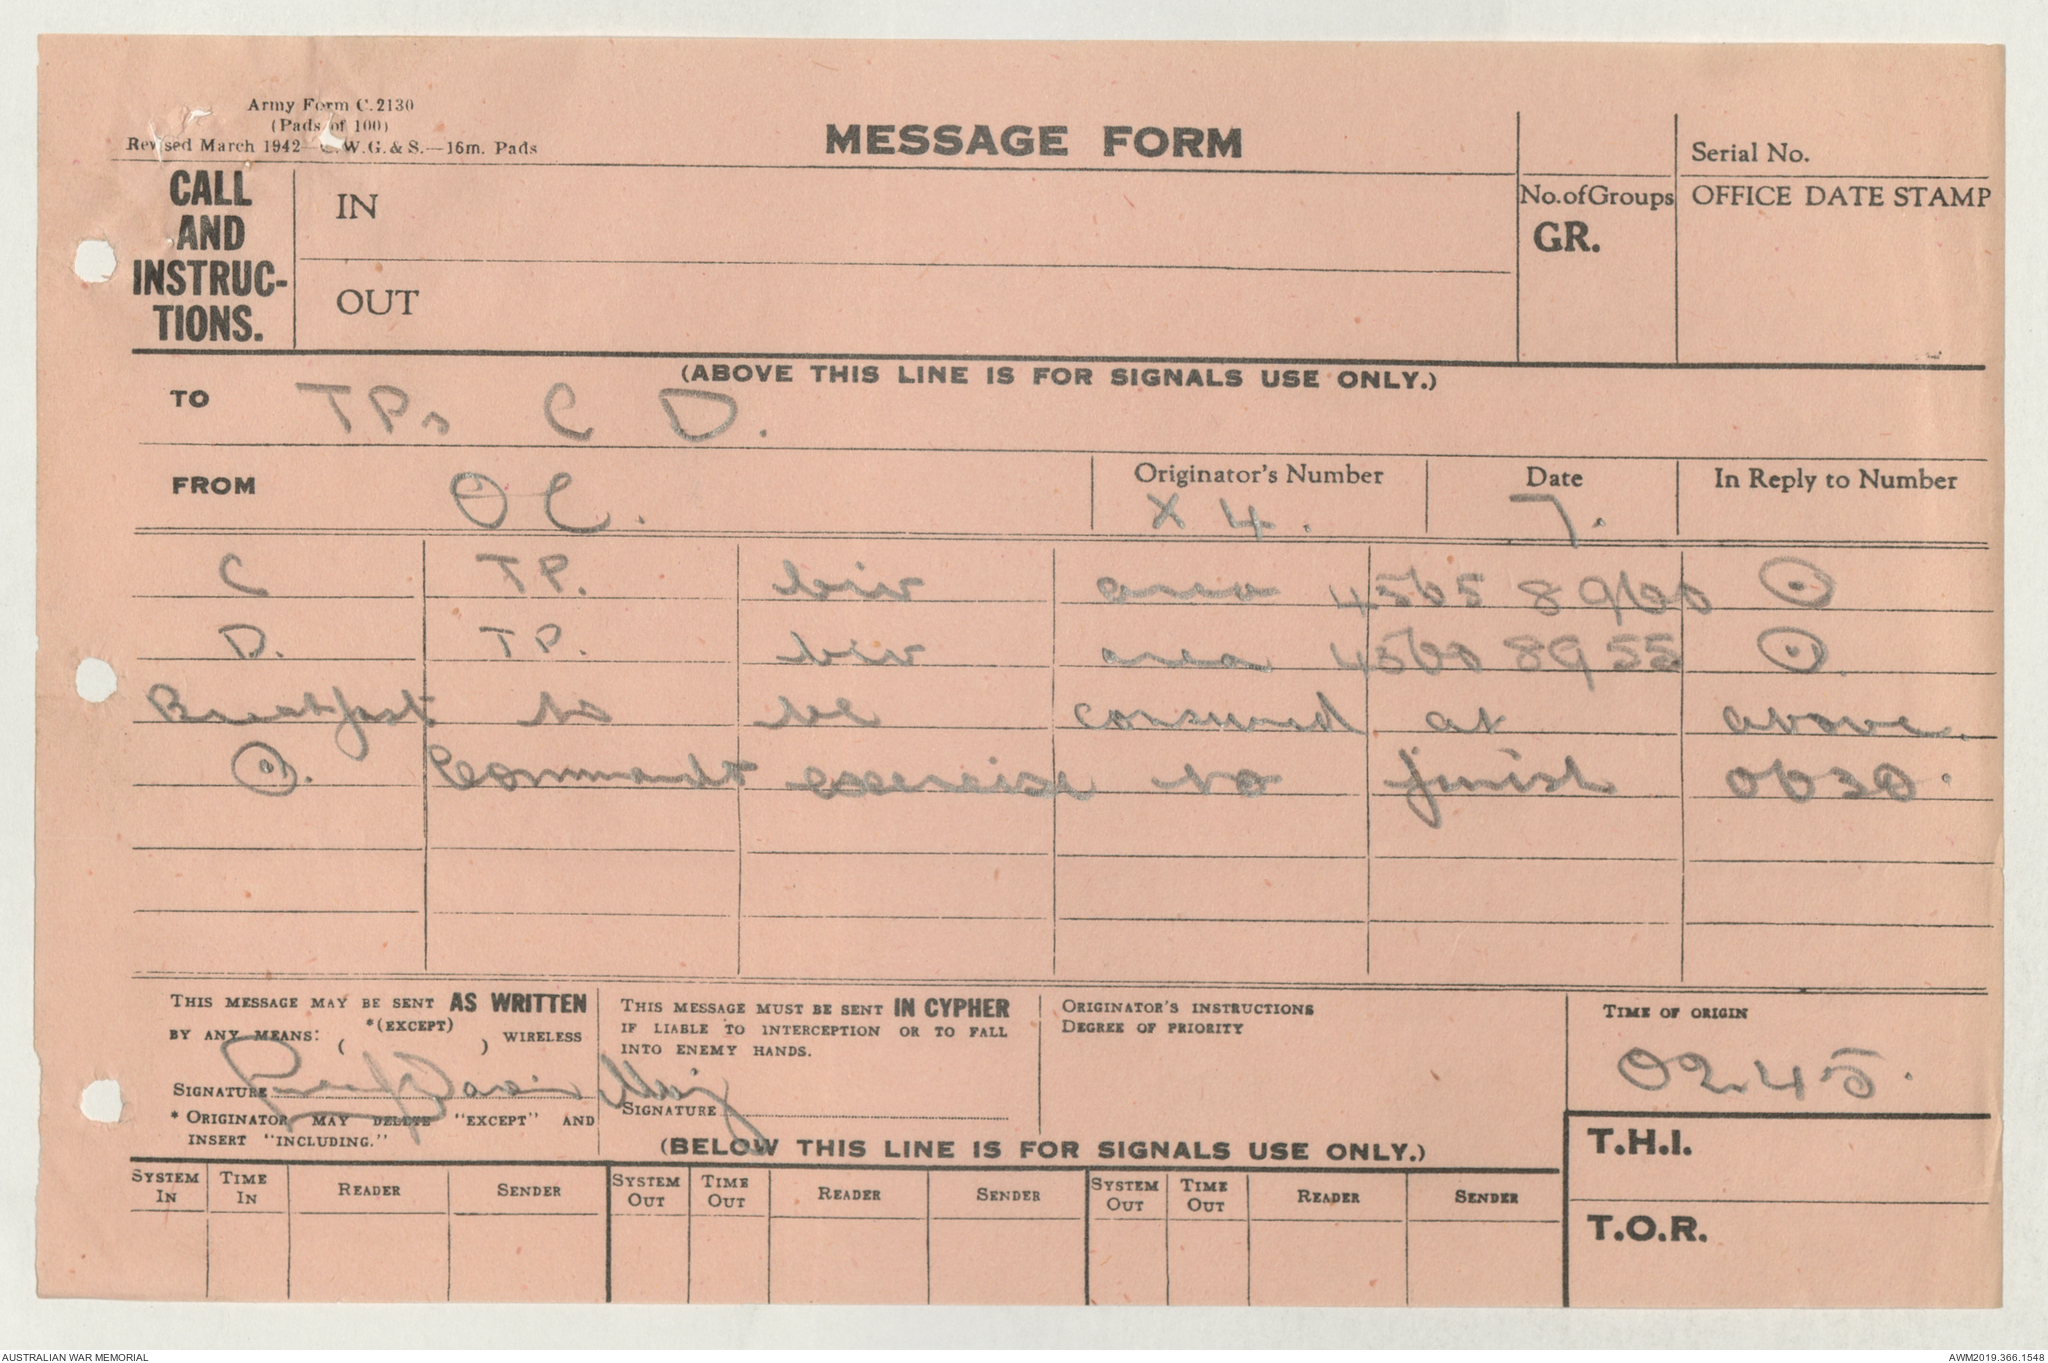 Army Form C.2130
(Pads of 100)
Revised March 1942—C.W.G. & S.—16m. Pads
MESSAGE FORM
Serial No.
CALL AND INSTRUC-TIONS.
IN
OUT
No. of Groups
GR.
OFFICE DATE STAMP
(ABOVE THIS LINE IS FOR SIGNALS USE ONLY.)
TO TPs C D.
FROM OC.
Originator's Number X 4.
Date 7.
In Reply to Number
C TP. biv area 4565 8960 ⊙
D. TP. biv area 4560 8955 ⊙.
Breakfast to be consumed at above.
⊙. Commandt exercise to finish 0630.
THIS MESSAGE MAY BE SENT AS WRITTEN
BY ANY MEANS: *(EXCEPT) ( ) WIRELESS
SIGNATURE
* ORIGINATOR MAY DELETE "EXCEPT" AND
INSERT "INCLUDING."
THIS MESSAGE MUST BE SENT IN CYPHER
IF LIABLE TO INTERCEPTION OR TO FALL
INTO ENEMY HANDS.
SIGNATURE
ORIGINATOR'S INSTRUCTIONS
DEGREE OF PRIORITY
TIME OF ORIGIN
0245.
(BELOW THIS LINE IS FOR SIGNALS USE ONLY.)
T.H.I.
T.O.R.
SYSTEM IN TIME IN READER SENDER SYSTEM OUT TIME OUT READER SENDER SYSTEM OUT TIME OUT READER SENDER
AUSTRALIAN WAR MEMORIAL
AWM2019.366.1548